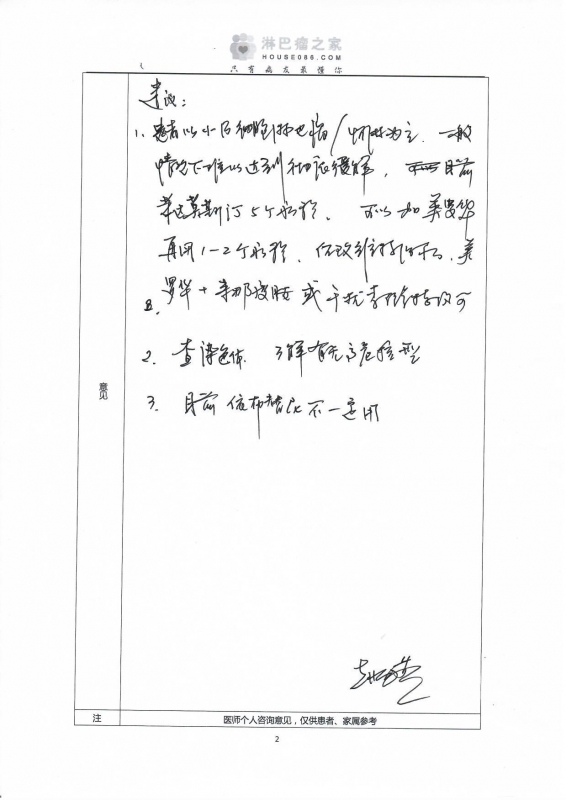 淋巴瘤之家
HOUSE086.COM
只有病友最懂你
建议:
1. 患者以小B细胞淋巴瘤/ 为主, 一般
情况下难以达到 缓解, 目前
苯达莫斯汀5个疗程, 可以加美罗华
再用1-2个疗程, 后改维持, 美
罗华+来那度胺 或干扰素 可
2. 查染色体 了解有无高危核型
3. 目前依布替尼不一定用
意见
注
医师个人咨询意见，仅供患者、家属参考
2